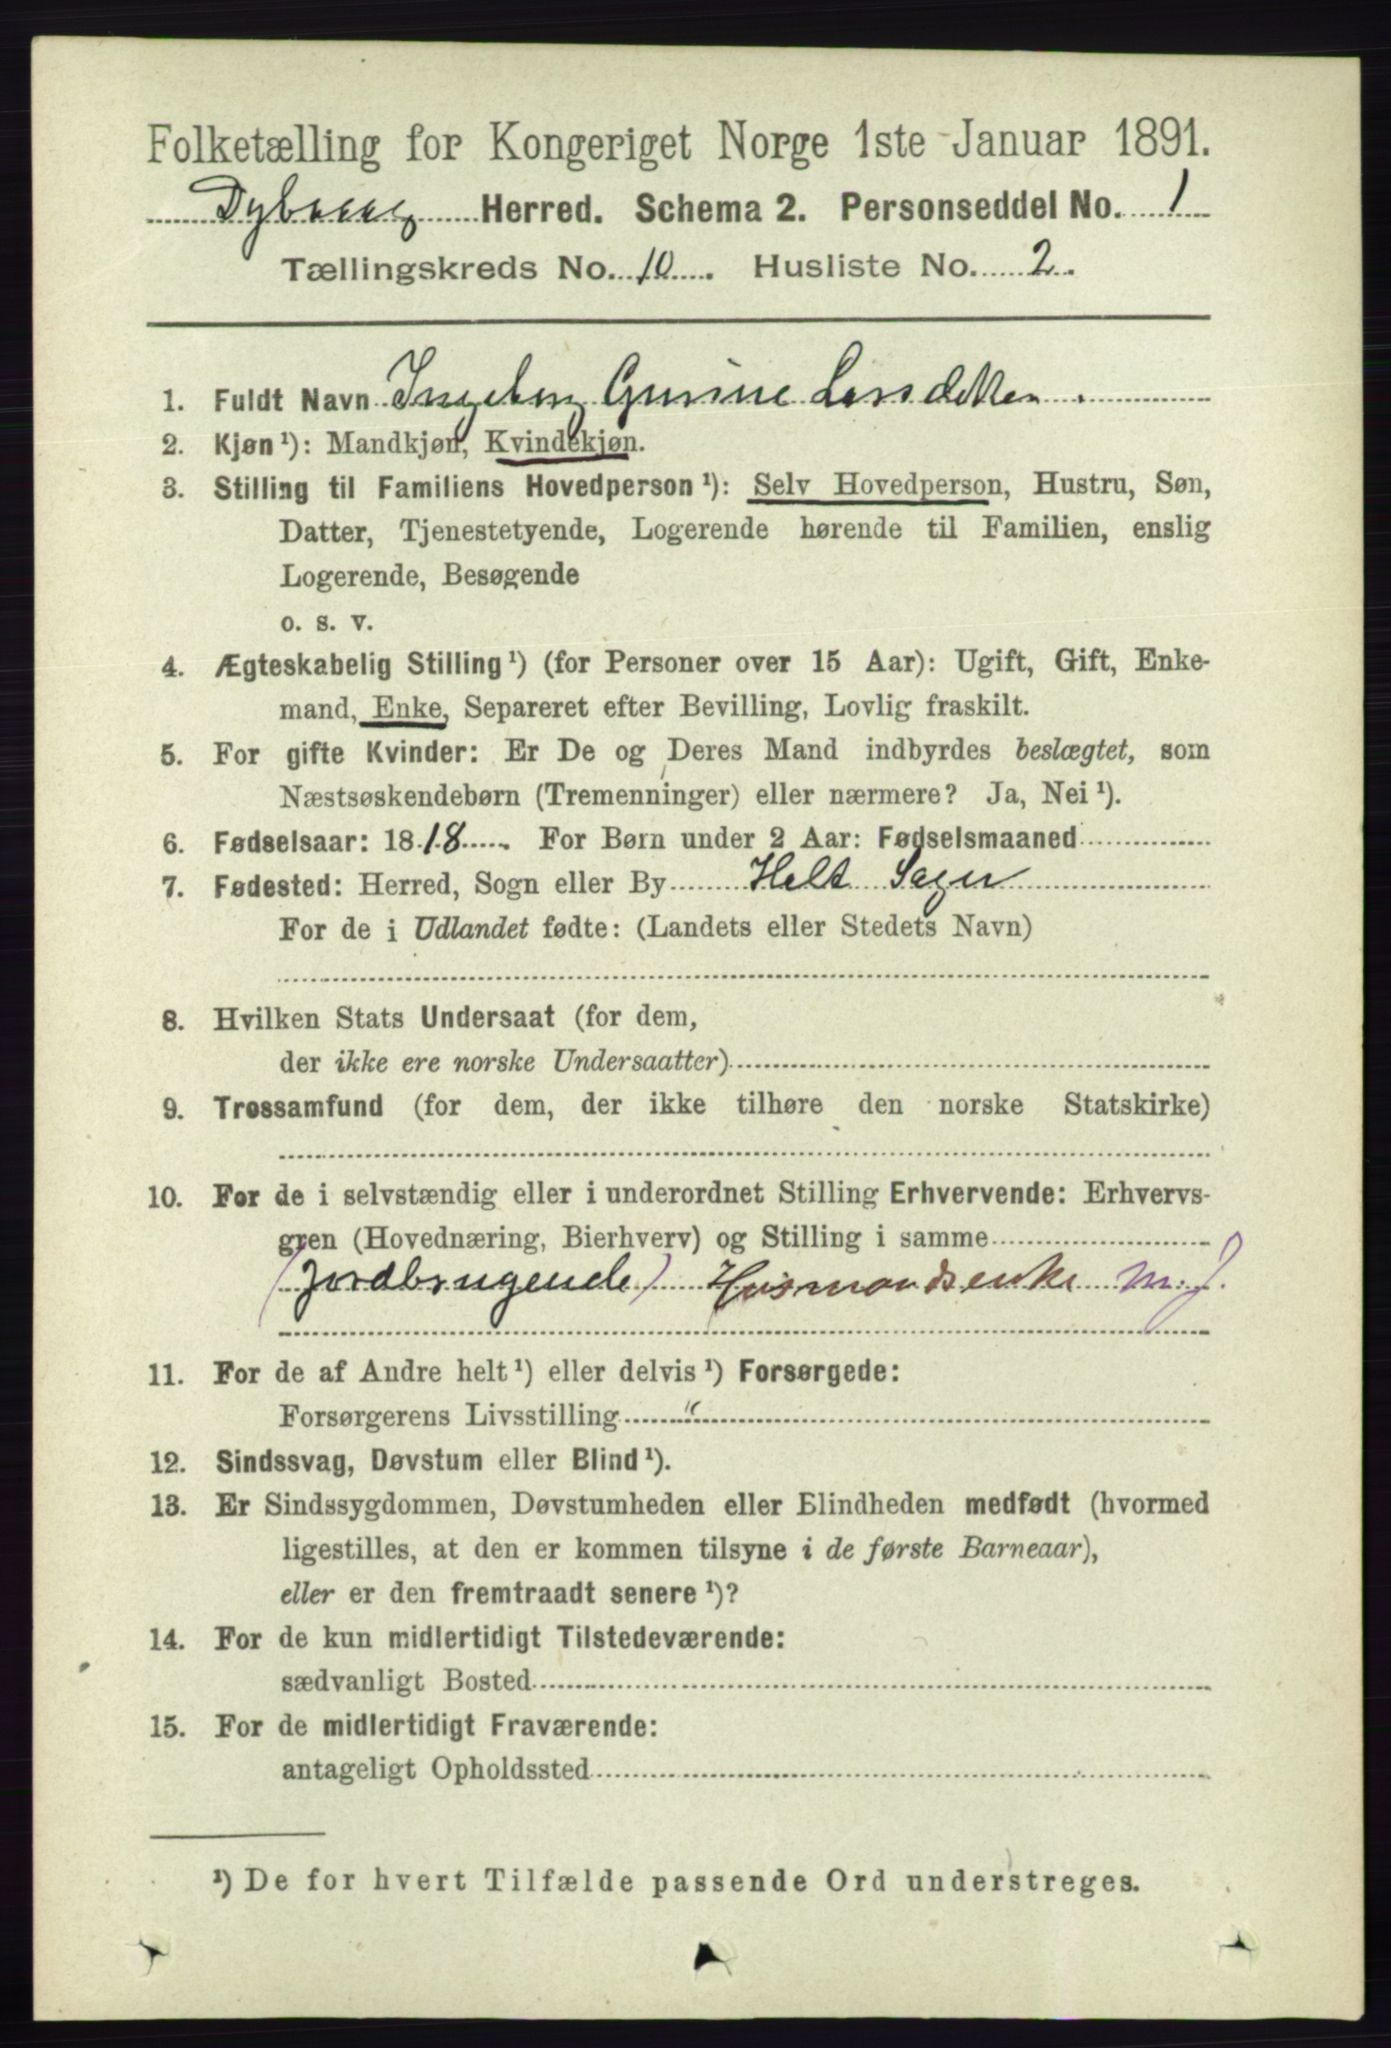 Folketælling for Kongeriget Norge 1ste Januar 1891.
Dybvaag Herred. Schema 2. Personseddel No. 1
Tællingskreds No. 10. Husliste No. 2.
1. Fuldt Navn Ingeborg Gunine Larsdatter.
2. Kjøn¹): Mandkjøn, Kvindekjøn.
3. Stilling til Familiens Hovedperson¹): Selv Hovedperson, Hustru, Søn,
Datter, Tjenestetyende, Logerende hørende til Familien, enslig
Logerende, Besøgende
o. s. v.
4. Ægteskabelig Stilling¹) (for Personer over 15 Aar): Ugift, Gift, Enke-
mand, Enke, Separeret efter Bevilling, Lovlig fraskilt.
5. For gifte Kvinder: Er De og Deres Mand indbyrdes beslægtet, som
Næstsøskendebørn (Tremenninger) eller nærmere? Ja, Nei¹).
6. Fødselsaar: 1818. For Børn under 2 Aar: Fødselsmaaned
7. Fødested: Herred, Sogn eller By Holt Sogn
For de i Udlandet fødte: (Landets eller Stedets Navn)
8. Hvilken Stats Undersaat (for dem,
der ikke ere norske Undersaatter)
9. Trossamfund (for dem, der ikke tilhøre den norske Statskirke)
10. For de i selvstændig eller i underordnet Stilling Erhvervende: Erhvervs-
gren (Hovednæring, Bierhverv) og Stilling i samme
(Jordbrugende) Husmandsenke m. J.
11. For de af Andre helt¹) eller delvis¹) Forsørgede:
Forsørgerens Livsstilling "
12. Sindssvag, Døvstum eller Blind¹).
13. Er Sindssygdommen, Døvstumheden eller Blindheden medfødt (hvormed
ligestilles, at den er kommen tilsyne i de første Barneaar),
eller er den fremtraadt senere¹)?
14. For de kun midlertidigt Tilstedeværende:
sædvanligt Bosted
15. For de midlertidigt Fraværende:
antageligt Opholdssted
¹) De for hvert Tilfælde passende Ord understreges.